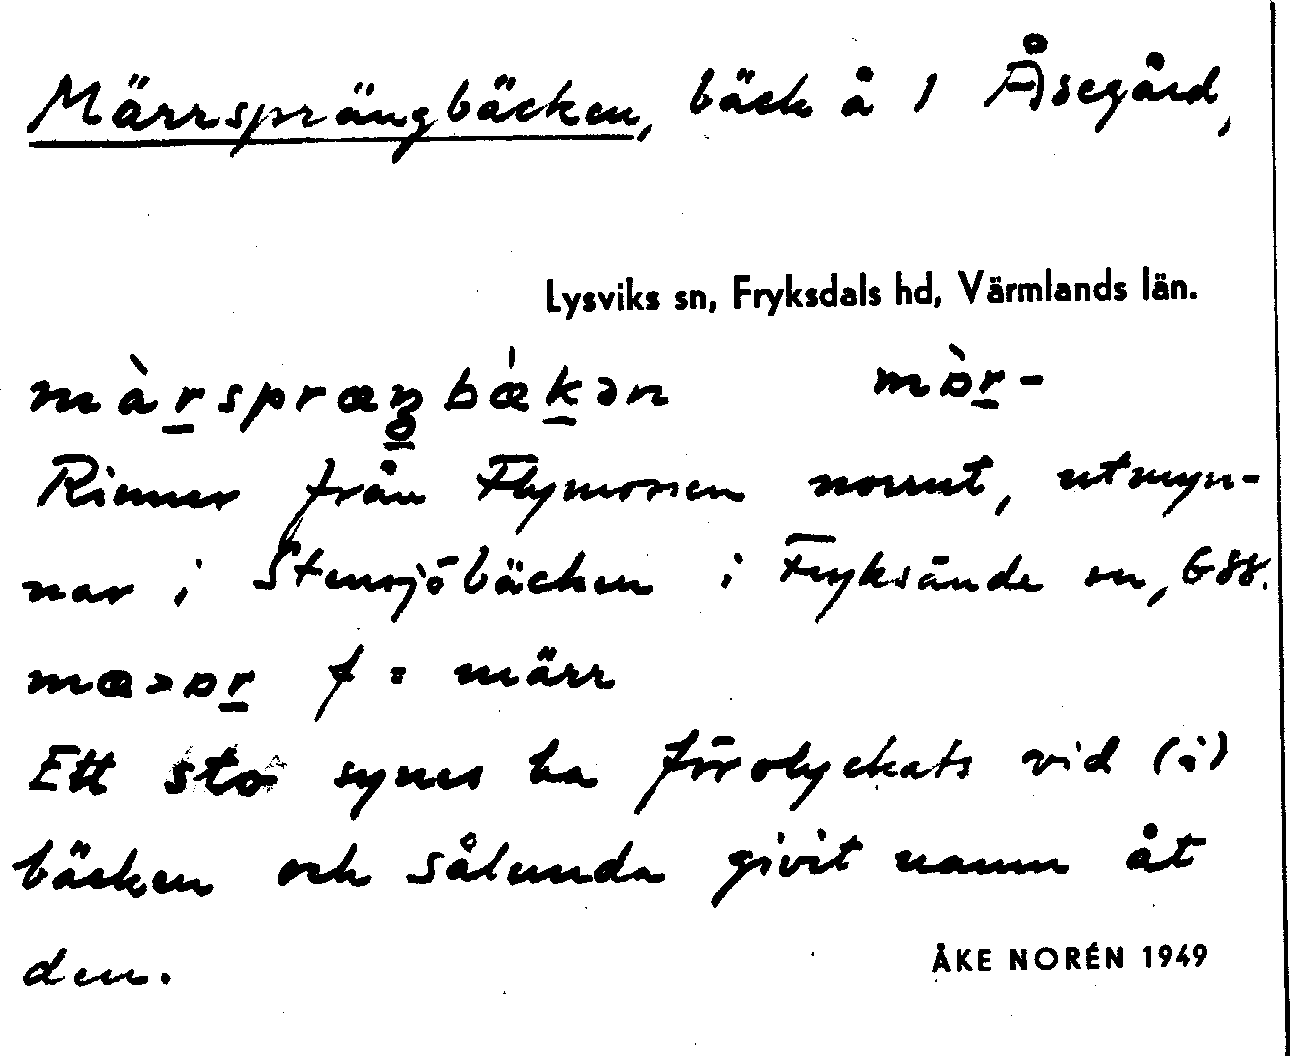 Märrsprängbäcken, bäck å 1 Åsegård,
Lysviks sn, Fryksdals hd, Värmlands län.
màr̲spræŋbǽk̲ən mɒ̀r̲-
Rinner från Flymossen norrut, utmyn-
nar i Stensjöbäcken i Fryksände sn, G88.
mæ>ɒr̲ f = märr
Ett sto synes ha förolyckats vid (i)
bäcken och sålunda givit namn åt
den.
ÅKE NORÉN 1949